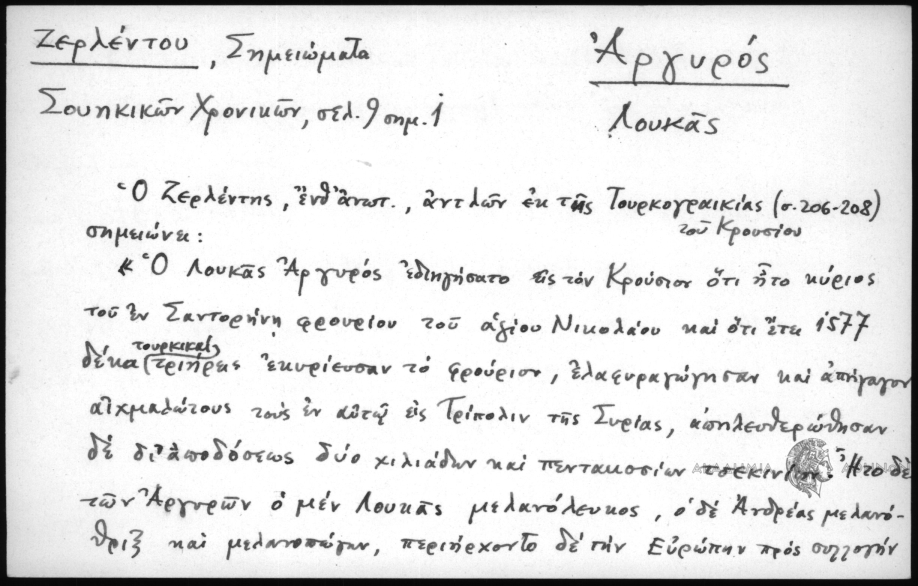 Ζερλέντου, Σημειώματα
Σουηκικῶν Χρονικῶν, σελ. 9 σημ. 1
Ἀργυρός
Λουκᾶς
Ὁ Ζερλέντης, ἔνθ' ἀνωτ., ἀντλῶν ἐκ τῆς Τουρκογραικίας (σ. 206-208)
τοῦ Κρουσίου
σημειώνει:
« Ὁ Λουκᾶς Ἀργυρός ἐδιηγήσατο εἰς τὸν Κρούσιον ὅτι ἦτο κύριος
τοῦ ἐν Σαντορήνῃ φρουρίου τοῦ ἁγίου Νικολάου καὶ ὅτι ἔτει 1577
δέκα τουρκικαὶ τριήρεις ἐκυρίευσαν τὸ φρούριον, ἐλαφυραγώγησαν καὶ ἀπήγαγον
αἰχμαλώτους τοὺς ἐν αὐτῷ εἰς Τρίπολιν τῆς Συρίας, ἀπηλευθερώθησαν
δὲ δι' ἀποδόσεως δύο χιλιάδων καὶ πεντακοσίων τσεκινίων. Ἦτο δὲ
τῶν Ἀργυρῶν ὁ μέν Λουκᾶς μελανόλευκος, ὁ δὲ Ἀνδρέας μελανό-
θριξ καὶ μελανοπώγων, περιήρχοντο δὲ τὴν Εὐρώπην πρὸς συλλογήν